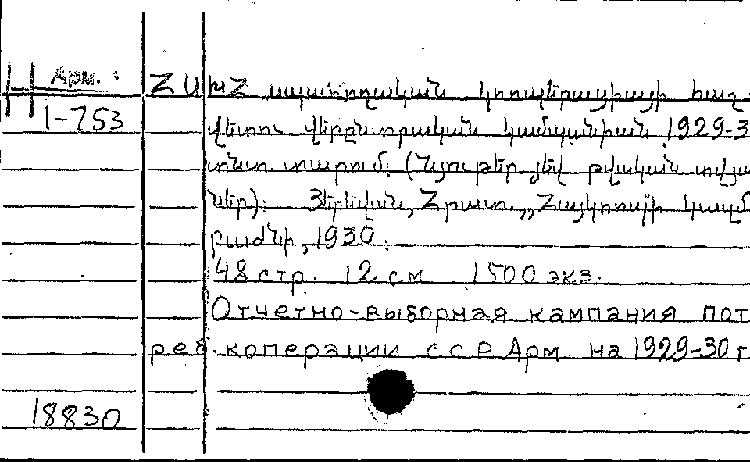 Н Арм. :
1-753
ՀՍԽՀ սպառողական կոոպերացիայի հաշ-
վետու վերընտրական կամպանիան 1929-3
տնտ. տարում: (Նյութեր յեվ թվական տվյա
ներ): Յերևան, Հրատ. „Հայկոոպի կազմ
բաժնի, 1930.
48 стр. 12 см 1500 экз.
Отчетно-выборная кампания пот
реб. коперации ССР Арм на 1929-30 г
18830